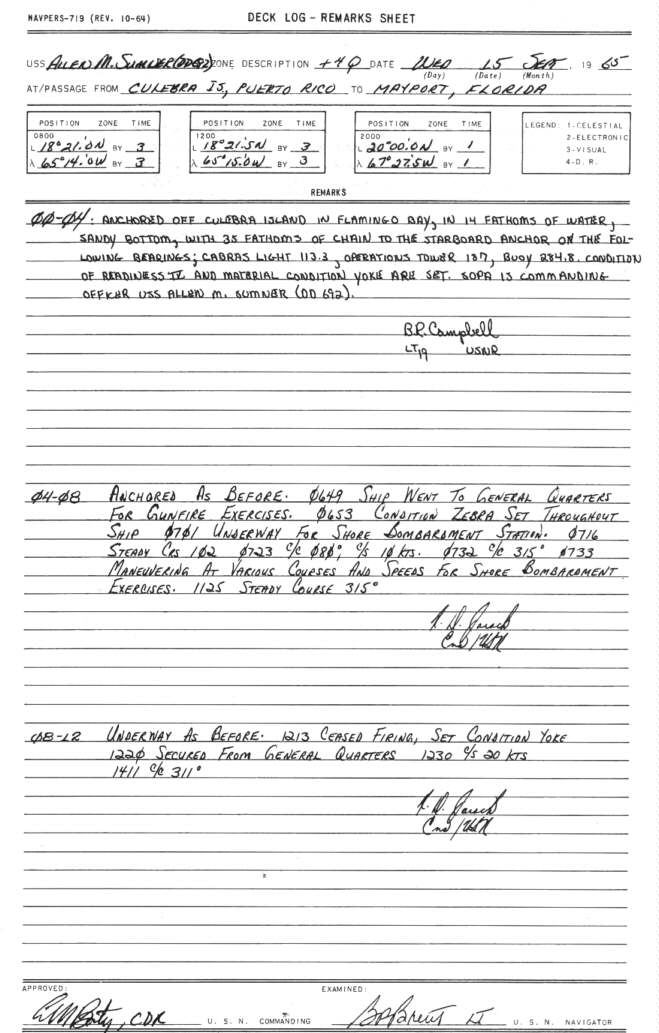 NAVPERS-719 (REV. 10-64)
DECK LOG – REMARKS SHEET
USS ALLEN M. SUMNER (DD692) ZONE DESCRIPTION +4Q DATE WED 15 SEPT, 19 65
(Day) (Date) (Month)
AT/PASSAGE FROM CULEBRA IS, PUERTO RICO TO MAYPORT, FLORIDA
POSITION ZONE TIME POSITION ZONE TIME POSITION ZONE TIME LEGEND: 1-CELESTIAL
0800 1200 2000 2-ELECTRONIC
L 18°21.'0N BY 3 L 18°21.'5N BY 3 L 20°00.'0N BY 1 3-VISUAL
λ 65°14.'0W BY 3 λ 65°15.'0W BY 3 λ 67°27.'5W BY 1 4-D. R.
REMARKS
00-04: ANCHORED OFF CULEBRA ISLAND IN FLAMINGO BAY, IN 14 FATHOMS OF WATER,
SANDY BOTTOM, WITH 35 FATHOMS OF CHAIN TO THE STARBOARD ANCHOR ON THE FOL-
LOWING BEARINGS; CABRAS LIGHT 113.3, OPERATIONS TOWER 187, BUOY 284.8. CONDITION
OF READINESS IV AND MATERIAL CONDITION YOKE ARE SET. SOPA IS COMMANDING
OFFICER USS ALLEN M. SUMNER (DD 692).
B.R. Campbell
LTJG USNR
04-08 ANCHORED AS BEFORE. 0649 SHIP WENT TO GENERAL QUARTERS
FOR GUNFIRE EXERCISES. 0653 CONDITION ZEBRA SET THROUGHOUT
SHIP 0701 UNDERWAY FOR SHORE BOMBARDMENT STATION. 0716
STEADY CRS 102 0723 C/C 080°, C/S 10 KTS. 0732 C/C 315° 0733
MANEUVERING AT VARIOUS COURSES AND SPEEDS FOR SHORE BOMBARDMENT
EXERCISES. 1125 STEADY COURSE 315°
08-12 UNDERWAY AS BEFORE. 1213 CEASED FIRING, SET CONDITION YOKE
1220 SECURED FROM GENERAL QUARTERS 1230 C/S 20 KTS
1411 C/C 311°
APPROVED: EXAMINED:
CDR U. S. N. COMMANDING LT U. S. N. NAVIGATOR